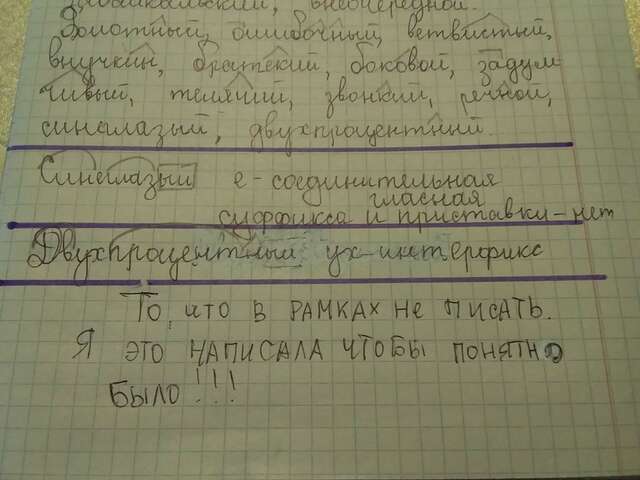 байкальский, внеочередной.
Болотный, ошибочный, ветвистый,
внучкин, братский, боковой, задум
чивый, телячий, звонкий, речной,
синеглазый, двухпроцентный.
Синеглазый е - соединительная
гласная
суффикса и приставки - нет
Двухпроцентный ух - интерфикс
То, что в рамках не писать.
Я это написала чтобы понятно
было!!!